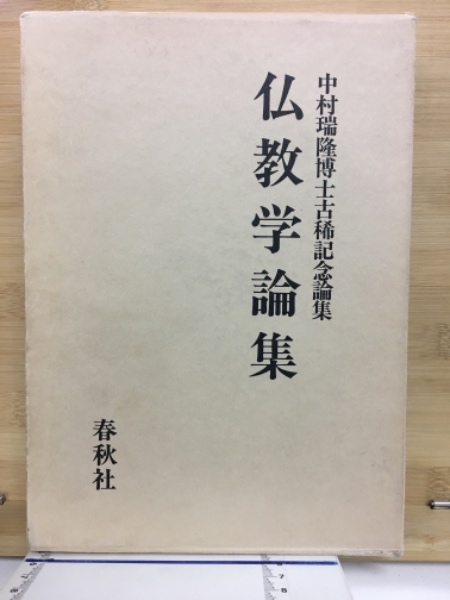 中村瑞隆博士古稀記念論集
仏教学論集
春秋社
7 8